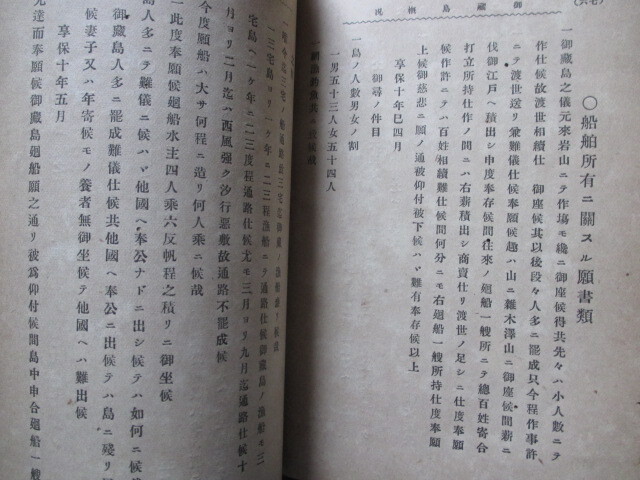 御藏島槪况
(七六)
〇船舶所有ニ關スル願書類
一御藏島之儀元來岩山ニテ作塲モ纔ニ御座候得共先々ハ小人數ニテ
作仕候故渡世相續仕 御座候其以後段々人多ニ罷成只今程作事許
ニテ渡世送リ兼難儀仕候奉願候趣ハ山ニ雜木澤山ニ御座候間薪ニ
伐御江戸ヘ積出シ申度奉存候間往來ノ廻船一艘所ニテ總百姓寄合
打立所持仕作ノ間ニハ右薪積出シ商賣仕リ渡世ノ足シニ仕度奉願
候作許ニテハ百姓相續難仕候間何分ニモ右廻船一艘所持仕度奉願
上候御慈悲ニ願ノ通被仰付被下候ハヾ難有奉存候以上
享保十年巳四月
御尋ノ件目
一島ノ人數男女ノ割
一男五十三人女五十四人
一三宅島ヨリ一ケ年ニ二三程漁船ニテ通路仕候御藏島ノ漁船モ三
宅島ヘ一ケ年ニ二三度程通路仕候尤モ三月ヨリ九月迄通路仕候十
月ヨリ二月迄ハ西風强ク汐行惡敷故通路不罷成候
今度願船ハ大サ何程ニ造リ何人乘ニ候哉
一此度奉願候廻船水主四人乘六反帆程之積リニ御坐候
島人多ニテ難儀ニ候ハヾ他國ヘ奉公ナドニ出シ候テハ如何ニ候哉
御藏島人多ニ罷成難儀仕候共他國ヘ奉公ニ出候テハ島ニ殘リ
候妻子又ハ年寄候モノ養者無御坐候テ他國ヘハ難出候
享保十年五月
先達而奉願候御藏島廻船願之通リ被爲仰付候間島中申合廻船一艘